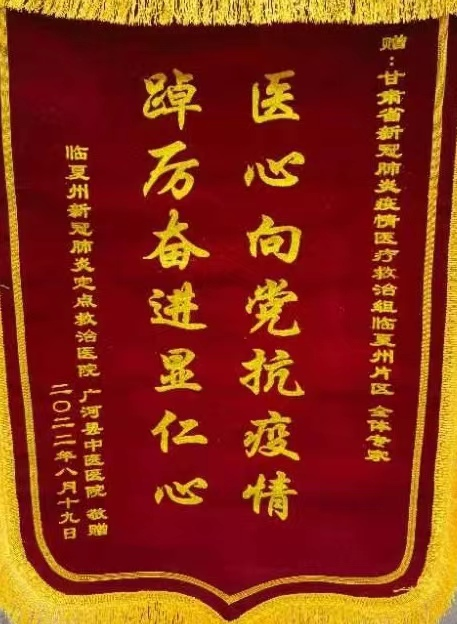 赠：甘肃省新冠肺炎疫情医疗救治组临夏州片区 全体专家
医心向党抗疫情
踔厉奋进显仁心
临夏州新冠肺炎定点救治医院 广河县中医医院 敬赠
二〇二二年八月十九日